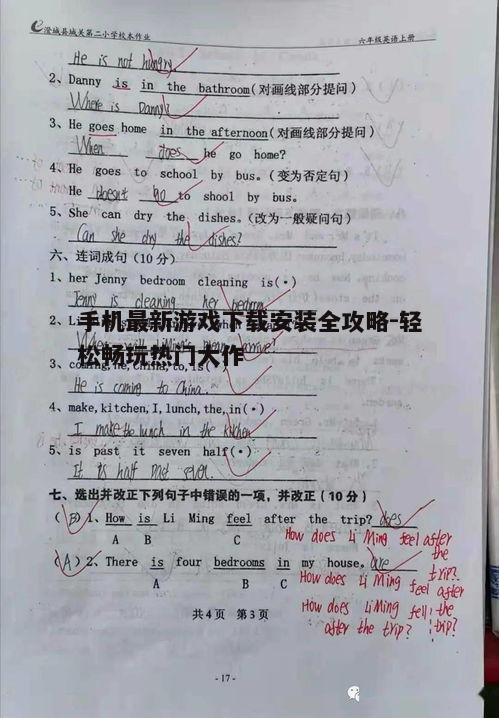 澄城县城关第二小学校本作业 六年级英语上册
He is not hungry
2、Danny is in the bathroom(对画线部分提问)
Where is Danny?
3、He goes home in the afternoon(对画线部分提问)
When does he go home?
4、He goes to school by bus.(变为否定句)
He doesn't go to shool by bus.
5、She can dry the dishes.(改为一般疑问句)
Can she dry the dishes?
六、连词成句(10分)
1、her Jenny bedroom cleaning is(•)
Jenny is cleaning her bedroom
手机最新游戏下载安装全攻略-轻
松畅玩热门大作
2、Li
arrive?
3、coming,he,China,to,is(•)
He is coming to China.
4、make,kitchen,I,lunch,the,in(•)
I make the lunch in the kitchen
5、is past it seven half(•)
It is half past seven.
七、选出并改正下列句子中错误的一项,并改正(10分)
(B)1、How is Li Ming feel after the trip? does
A B C
How does Li Ming feel after the trip?
(A)2、There is four bedrooms in my house. are
A B C
How does Li Ming feel after the trip?
How does Li Ming fell after the trip?
共4页 第3页
-17-